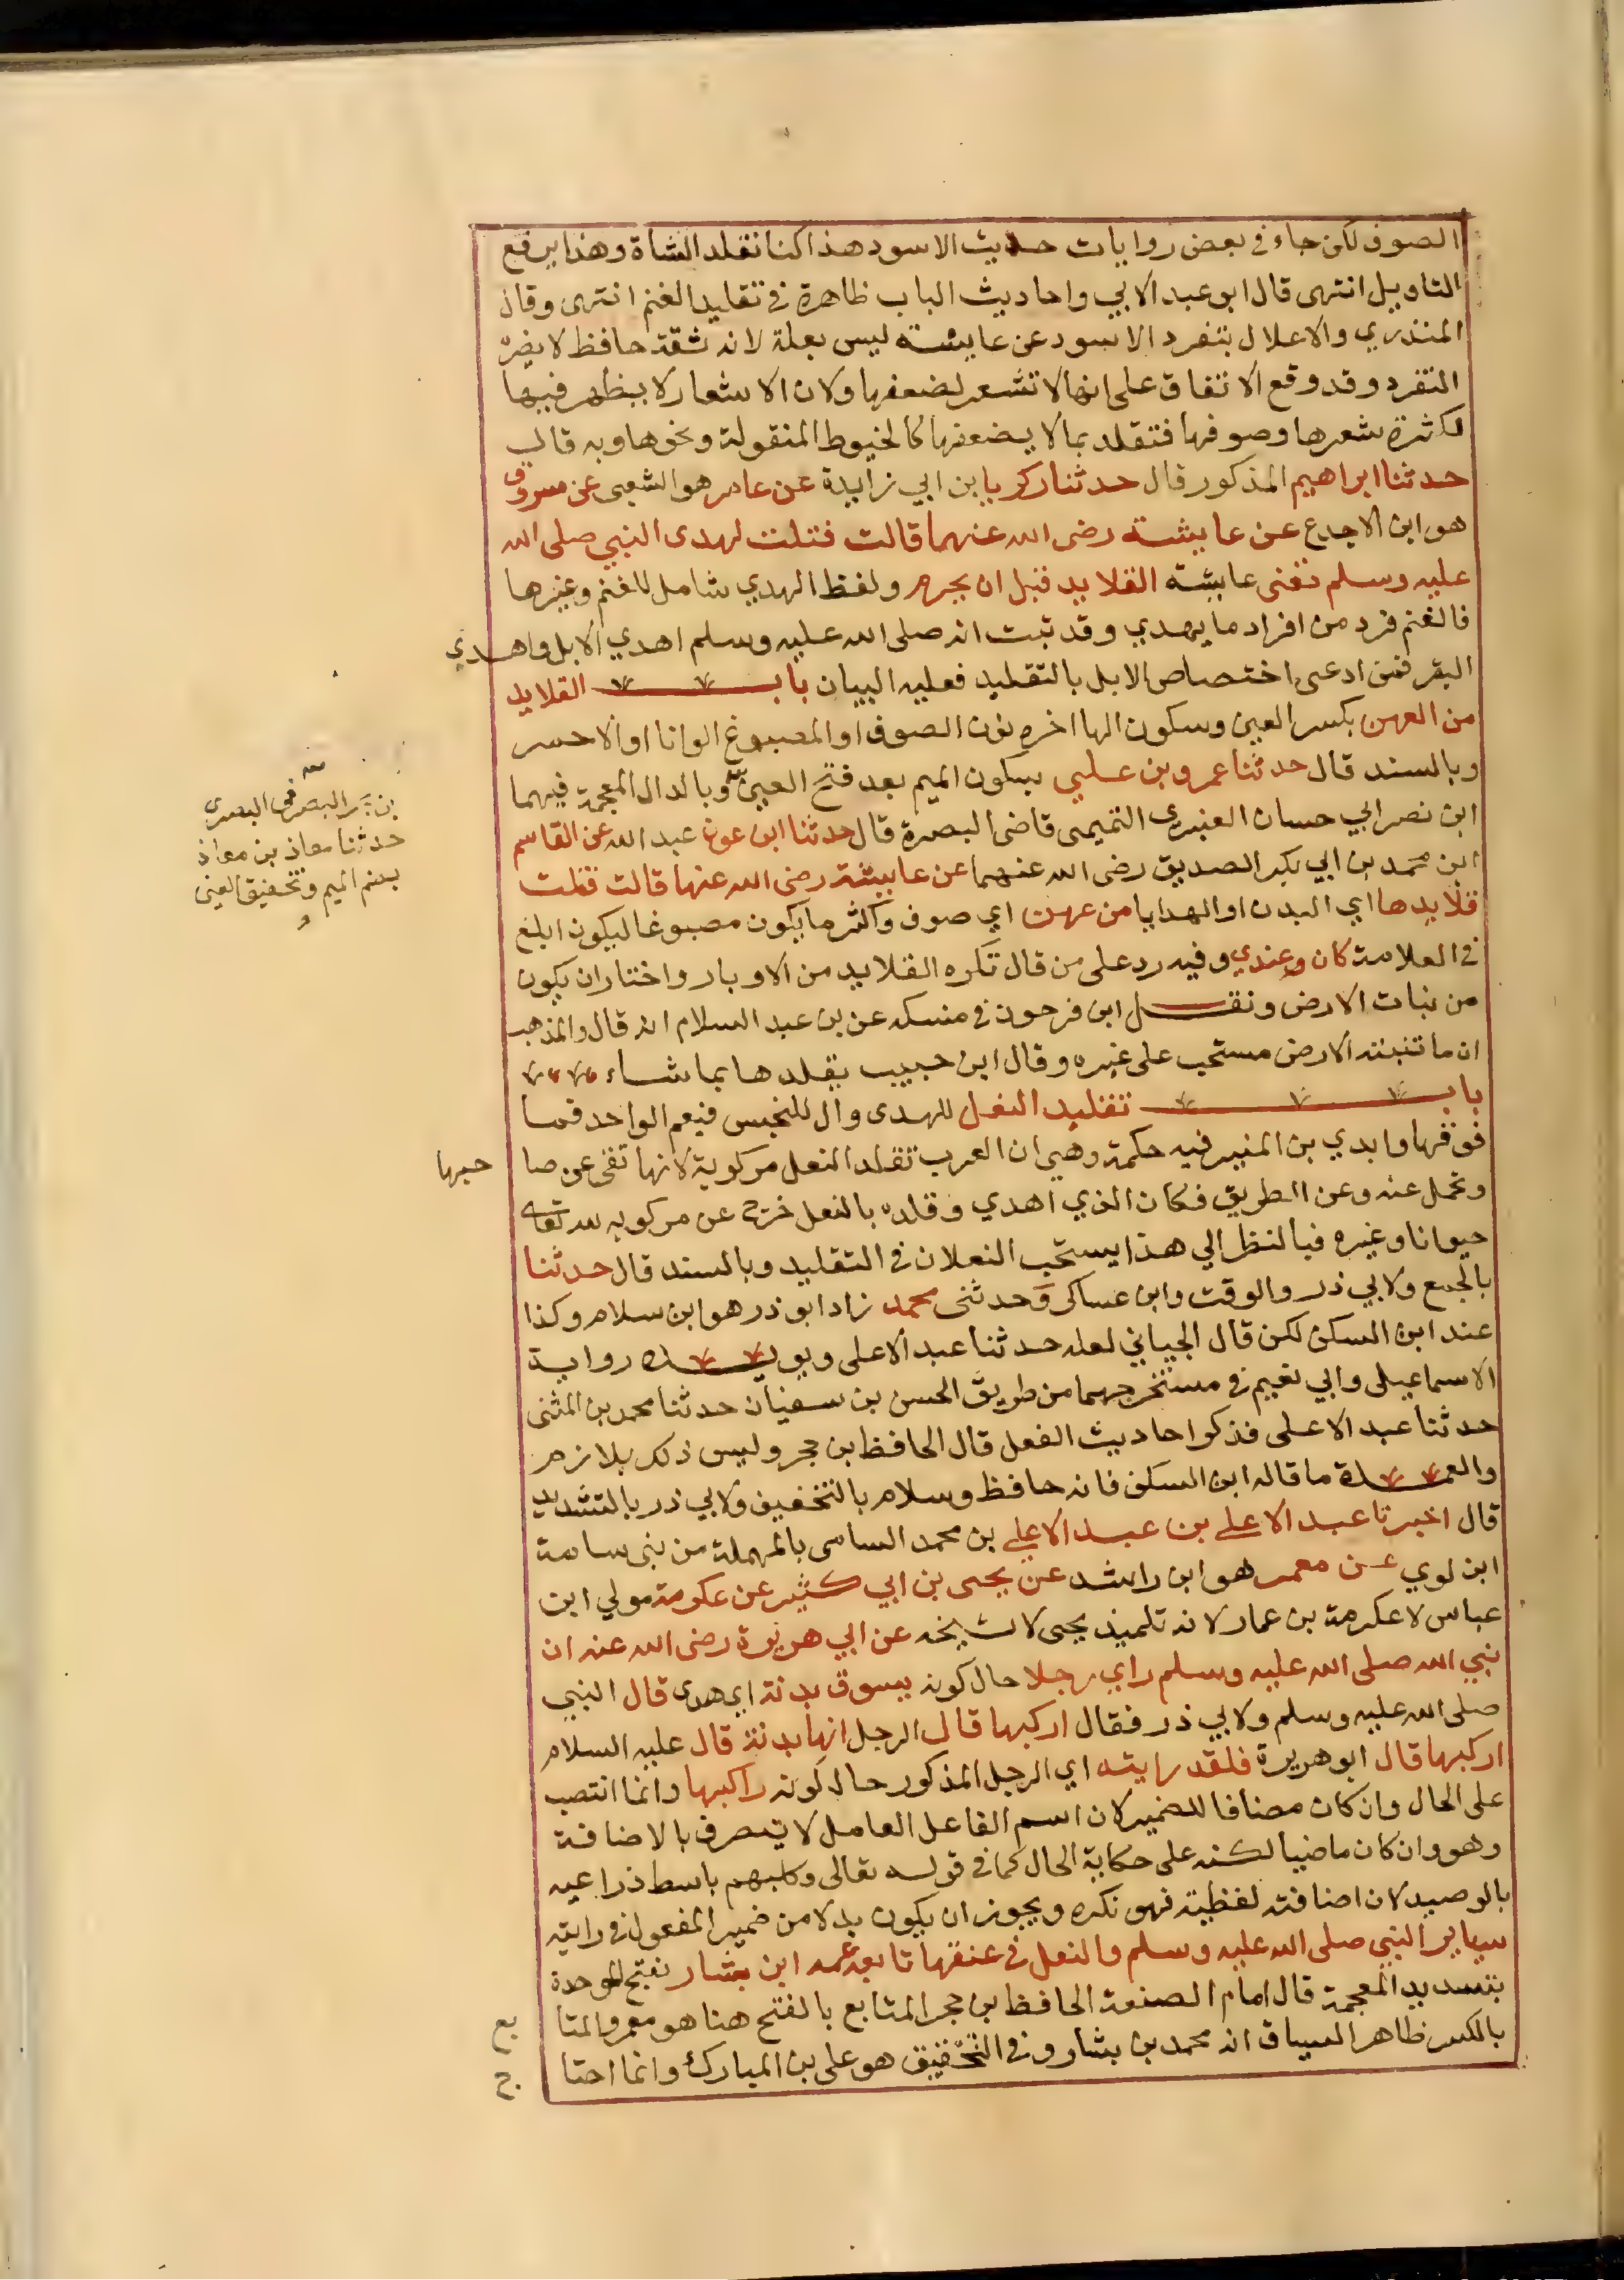 الصوف لكن جاء في بعض روايات حديث الاسود هذا كنا نقلد الشاة وهذا يرفع
التاويل انتهى قال ابو عبد الابي واحاديث الباب ظاهرة في تقليد الغنم انتهى وقال
المنذري والاعلال بتفرد الاسود عن عايشه ليس بعلة لانه ثقة حافظ لا يضره
التفرد وقد وقع الاتفاق على انها لا تشعر لضعفها ولان الاشعار لا يظهر فيها
لكثرة شعرها وصوفها فتقلد بما لا يضعفها كالخيوط المنقولة ونحوها وبه قال
حدثنا ابراهيم المذكور قال حدثنا زكريا بن ابي زايدة عن عامر هو الشعبي عن مسروق
هو ابن الاجدع عن عايشة رضى الله عنهما قالت فتلت لهدى النبي صلى الله
عليه وسلم تعنى عايشه القلايد قبل ان يحرم ولفظ الهدي شامل للغنم وغيرها
فالغنم فرد من افراد ما يهدي وقد ثبت انه صلى الله عليه وسلم اهدي الابل واهدي
البقر فمن ادعى اختصاص الابل بالتقليد فعليه البيان باب القلايد
من العهن بكسر العين وسكون الها اخره نون الصوف او المصبوغ الوانا او الاحمر
وبالسند قال حدثنا عمرو بن علي بسكون الميم بعد فتح العين وبالدال المعجمة فيهما
ابن نصر ابي حسان العنبري التميمى قاضى البصرة قال حدثنا ابن عون عبد الله عن القاسم
ابن محمد بن ابي بكر الصديق رضى الله عنهما عن عايشة رضى الله عنها قالت فتلت
قلايدها اي البدن او الهدايا من عهن اي صوف واكثر ما يكون مصبوغا ليكون ابلغ
في العلامة كان عندي وفيه رد على من قال تكره القلايد من الاوبار واختار ان يكون
من نبات الارض ونقل ابن فرحون في منسكه عن بن عبد السلام انه قال والمذهب
ان ما تنبته الارض مستحب على غيره وقال ابن حبيب يقلدها بما شاء
باب تقليد النعل للهدى وال للجنس فيعم الواحد فما
فوقها وابدي بن المنير فيه حكمة وهي ان العرب تقلد النعل مركوبة لانها تقى عن صا
حبها
وتحمل عنه وعن الطريق فكان الذي اهدي وقلده بالنعل خرج عن مركوبه لله تعالى
حيوانا وغيره فبالنظر الي هذا يستحب النعلان في التقليد وبالسند قال حدثنا
بالجمع ولابي ذر والوقت وابن عساكر وحدثنى محمد زاد ابو ذر هو ابن سلام وكذا
عند ابن السكن لكن قال الجياني لعله حدثنا عبد الاعلى ويويده رواية
الاسماعيلى وابي نعيم في مستخرجهما من طريق الحسن بن سفيان حدثنا محمد بن المثنى
حدثنا عبد الاعلى فذكر احاديث الفعل قال الحافظ بن حجر وليس ذلك بلازم
والعمدة ما قاله ابن السكن فانه حافظ وسلام بالتخفيف ولابي ذر بالتشديد
قال اخبرنا عبد الاعلي بن عبد الاعلي بن محمد السامى بالمهملة من بنى سامة
ابن لوي عن معمر هو ابن راشد عن يحيى بن ابي كثير عن عكرمة مولي ابن
عباس لا عكرمة بن عمار لانه تلميذ يحيى لا شيخه عن ابي هريرة رضى الله عنه ان
نبي الله صلى الله عليه وسلم راي رجلا حال كونه يسوق بدنة اي هدى قال النبي
صلى الله عليه وسلم ولابي ذر فقال اركبها قال الرجل انها بدنة قال عليه السلام
اركبها قال ابو هريرة فلقد رايته اي الرجل المذكور حال كونه راكبها وانما انتصب
على الحال وان كان مضافا للضمير لان اسم الفاعل العامل لا يتعرف بالاضافة
وهو وان كان ماضيا لكنه على حكاية الحال كما في قوله تعالى وكلبهم باسط ذراعيه
بالوصيد لان اضافته لفظية فهو نكره ويجوز ان يكون بدلا من ضمير المفعول في رايته
يساير النبي صلى الله عليه وسلم والنعل في عنقها تابعه محمد ابن بشار بفتح الموحدة
بتسديد المعجمة قال امام الصنعة الحافظ بن حجر المتابع بالفتح هنا هو معمر والمتا
بع
بالكسر ظاهر السياق انه محمد بن بشار وفي التحقيق هو على بن المبارك وانما احتا
ج
البصرى
حدثنا معاذ بن معاذ
بضم الميم وتخفيف العين